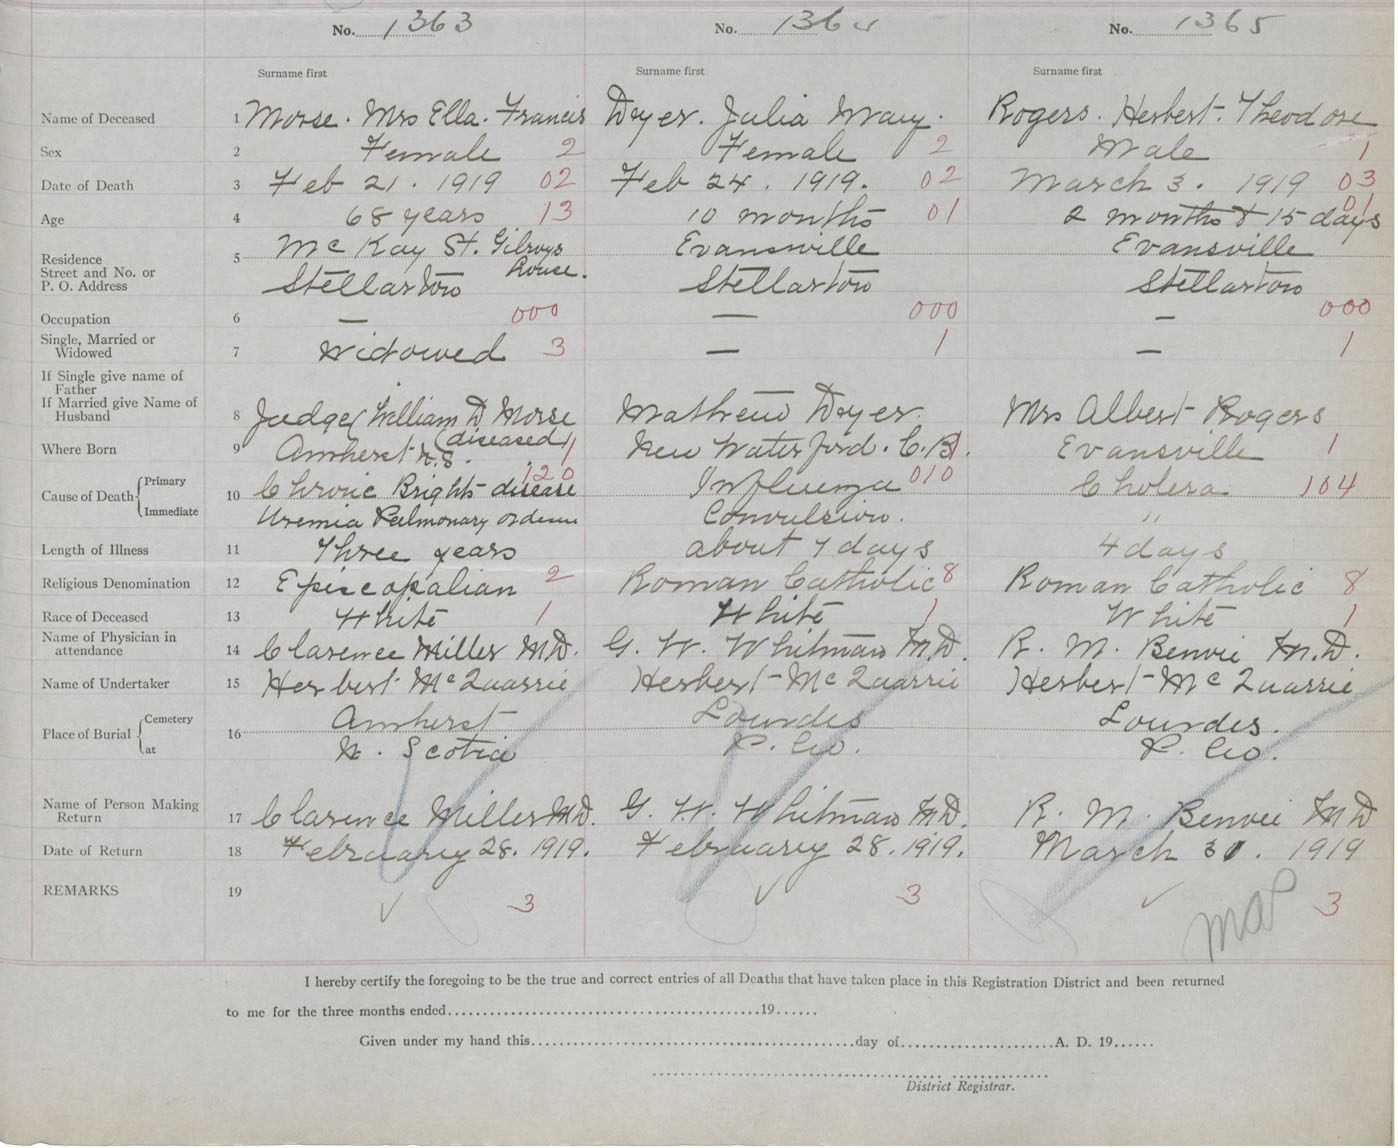 No. 1363 No. 1364 No. 1365
Surname first Surname first Surname first
Name of Deceased 1 Morse. Mrs Ella. Francis Dryer. Julia Mary. Rogers. Herbert. Theodore
Sex 2 Female 2 Female 2 Male 1
Date of Death 3 Feb 21. 1919 02 Feb 24. 1919. 02 March 3. 1919 03
Age 4 68 years 13 10 months 01 2 months & 15 days 01
Residence 5 McKay St. Gilroys Evansville Evansville
Street and No. or House.
P. O. Address Stellarton Stellarton Stellarton
Occupation 6 — 000 — 000 — 000
Single, Married or
Widowed 7 Widowed 3 — 1 — 1
If Single give name of
Father
If Married give Name of
Husband 8 Judge (William D Morse Mathew Dryer Mrs Albert Rogers
(diseased)
Where Born 9 Amherst N.S. 1 New Waterford. C.B. 1 Evansville 1
Cause of Death { Primary 10 Chronic Brights disease 120 Influenza 010 Cholera 104
Immediate Uremia Pulmonary Oedema Convulsion. "
Length of Illness 11 Three years about 7 days 4 days
Religious Denomination 12 Episcopalian 2 Roman Catholic 8 Roman Catholic 8
Race of Deceased 13 White 1 White 1 White 1
Name of Physician in
attendance 14 Clarence Miller M.D. G. W. Whitman M.D. R. M. Benvie M.D.
Name of Undertaker 15 Herbert McQuarrie Herbert McQuarrie Herbert McQuarrie
Place of Burial { Cemetery 16 Amherst Lourdes Lourdes.
at N. Scotia P. Co. P. Co.
Name of Person Making
Return 17 Clarence Miller M.D. G. W. Whitman M.D. R. M. Benvie M D
Date of Return 18 February 28. 1919. February 28. 1919. March 31. 1919
REMARKS 19 3 3 3
I hereby certify the foregoing to be the true and correct entries of all Deaths that have taken place in this Registration District and been returned
to me for the three months ended 19
Given under my hand this day of A. D. 19
District Registrar.